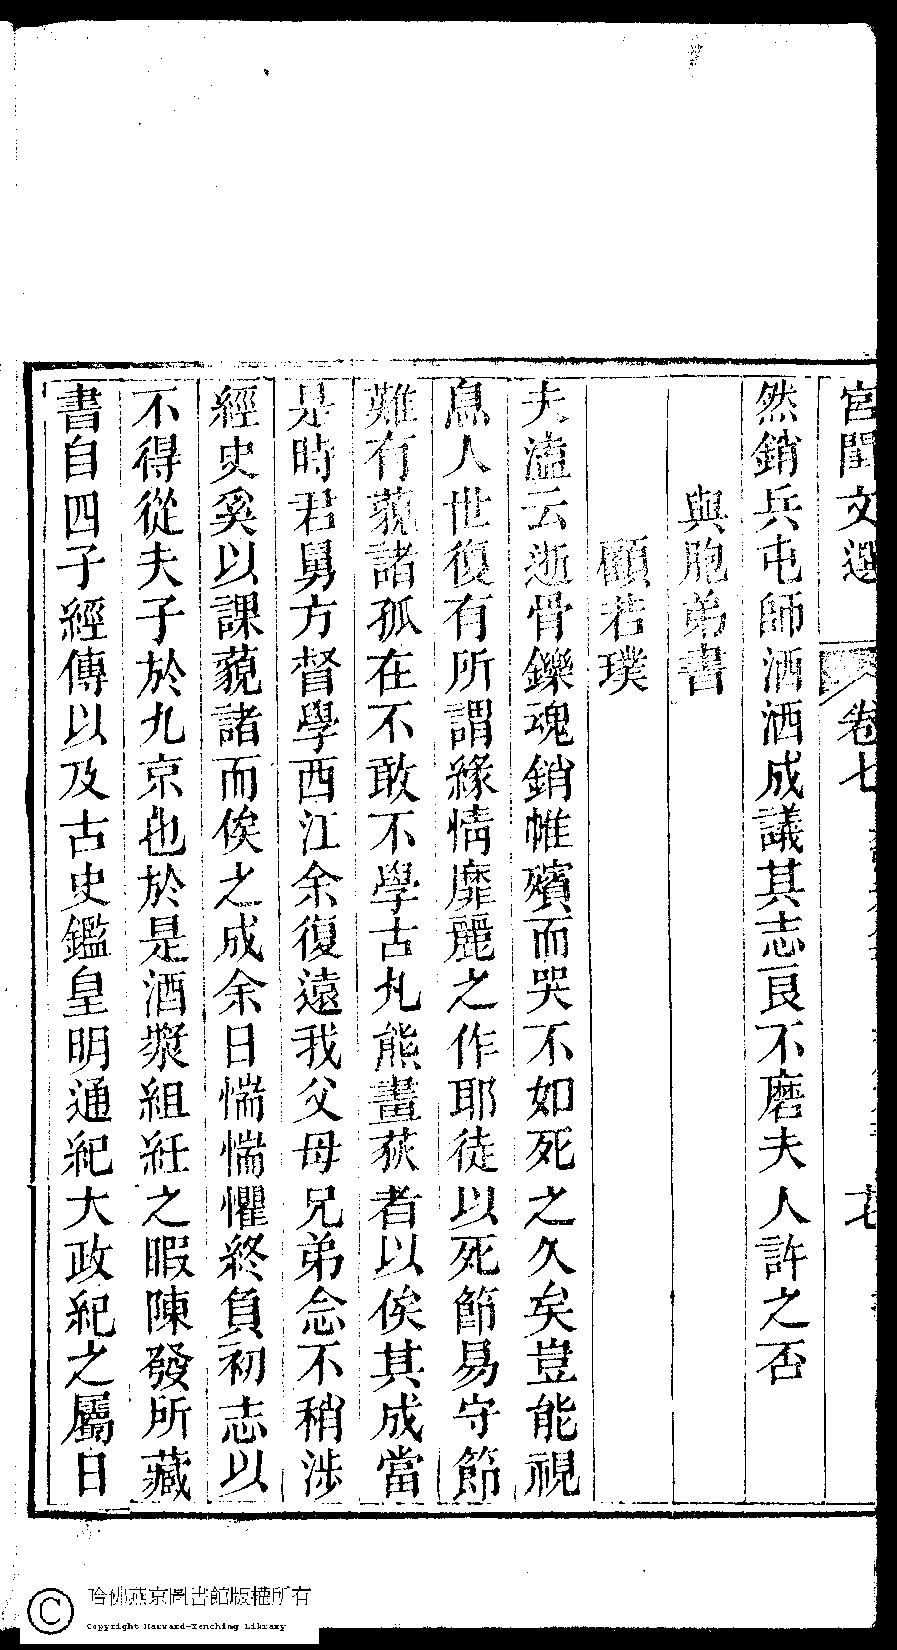 宮閨文選 卷七 七
然銷兵屯師洒洒成議其志良不磨夫人許之否
與胞弟書
顧若璞
夫溘云逝骨鑠魂銷帷殯而哭不如死之久矣豈能視
息人世復有所謂緣情靡麗之作耶徒以死節易守節
難有藐諸孤在不敢不學古丸熊畫荻者以俟其成當
是時君舅方督學西江余復遠我父母兄弟念不稍涉
經史奚以課藐諸而俟之成余日惴惴懼終負初志以
不得從夫子於九京也於是酒漿組紝之暇陳發所藏
書自四子經傳以及古史鑑皇明通紀大政紀之屬日
哈佛燕京圖書館版權所有
Copyright Harvard-Yenching Library